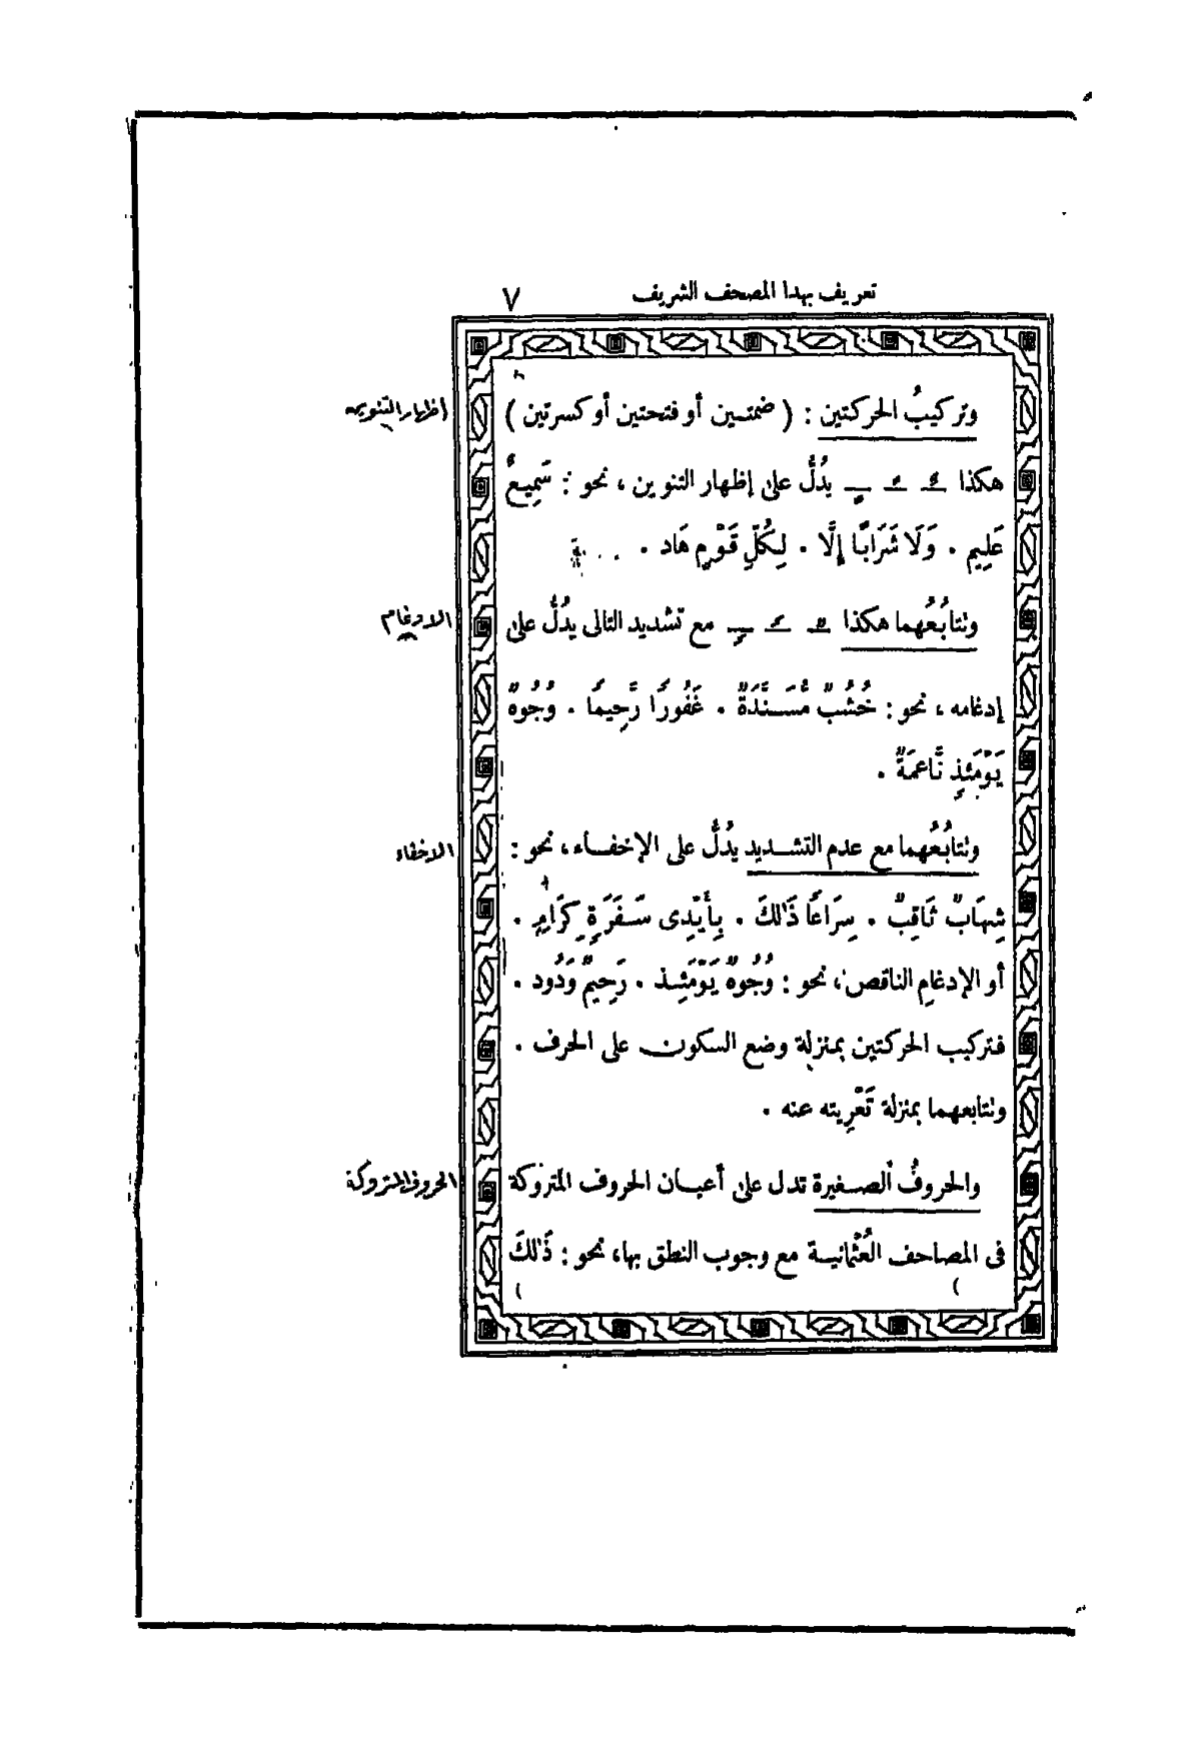 تعريف بهذا المصحف الشريف ٧
وتركيبُ الحركتين : ( ضمتين أو فتحتين أو كسرتين )
إظهار التنوين
هكذا ـٌ ـً ـٍ يدُلُّ على إظهار التنوين ، نحو : سَمِيعٌ
عَلِيم . وَلَا شَرَابًا إِلَّا . لِكُلِّ قَوْمٍ هَاد .
وتتابُعُهما هكذا ـٌ ـً ـٍ مع تشديد التالى يدُلُّ على
الادغام
إدغامه ، نحو : خُشُبٌ مُّسَنَّدَةٌ . غَفُورًا رَّحِيمًا . وُجُوهٌ
يَوْمَئِذٍ نَّاعِمَةٌ .
وتتابُعُهما مع عدم التشديد يدُلُّ على الإخفاء ، نحو :
الاخفاء
شِهَابٌ ثَاقِبٌ . سِرَاعًا ذَٰلِكَ . بِأَيْدِى سَفَرَةٍ كِرَامٍ .
أو الإدغام الناقص ، نحو : وُجُوهٌ يَوْمَئِذ . رَحِيمٌ وَدُود .
فتركيب الحركتين بمنزلة وضع السكون على الحرف .
وتتابعهما بمنزلة تَعْرِيته عنه .
والحروفُ الصغيرة تدل على أعيان الحروف المتروكة
الحروف المتروكة
فى المصاحف العُثْمانية مع وجوب النطق بها، نحو : ذَٰلِكَ